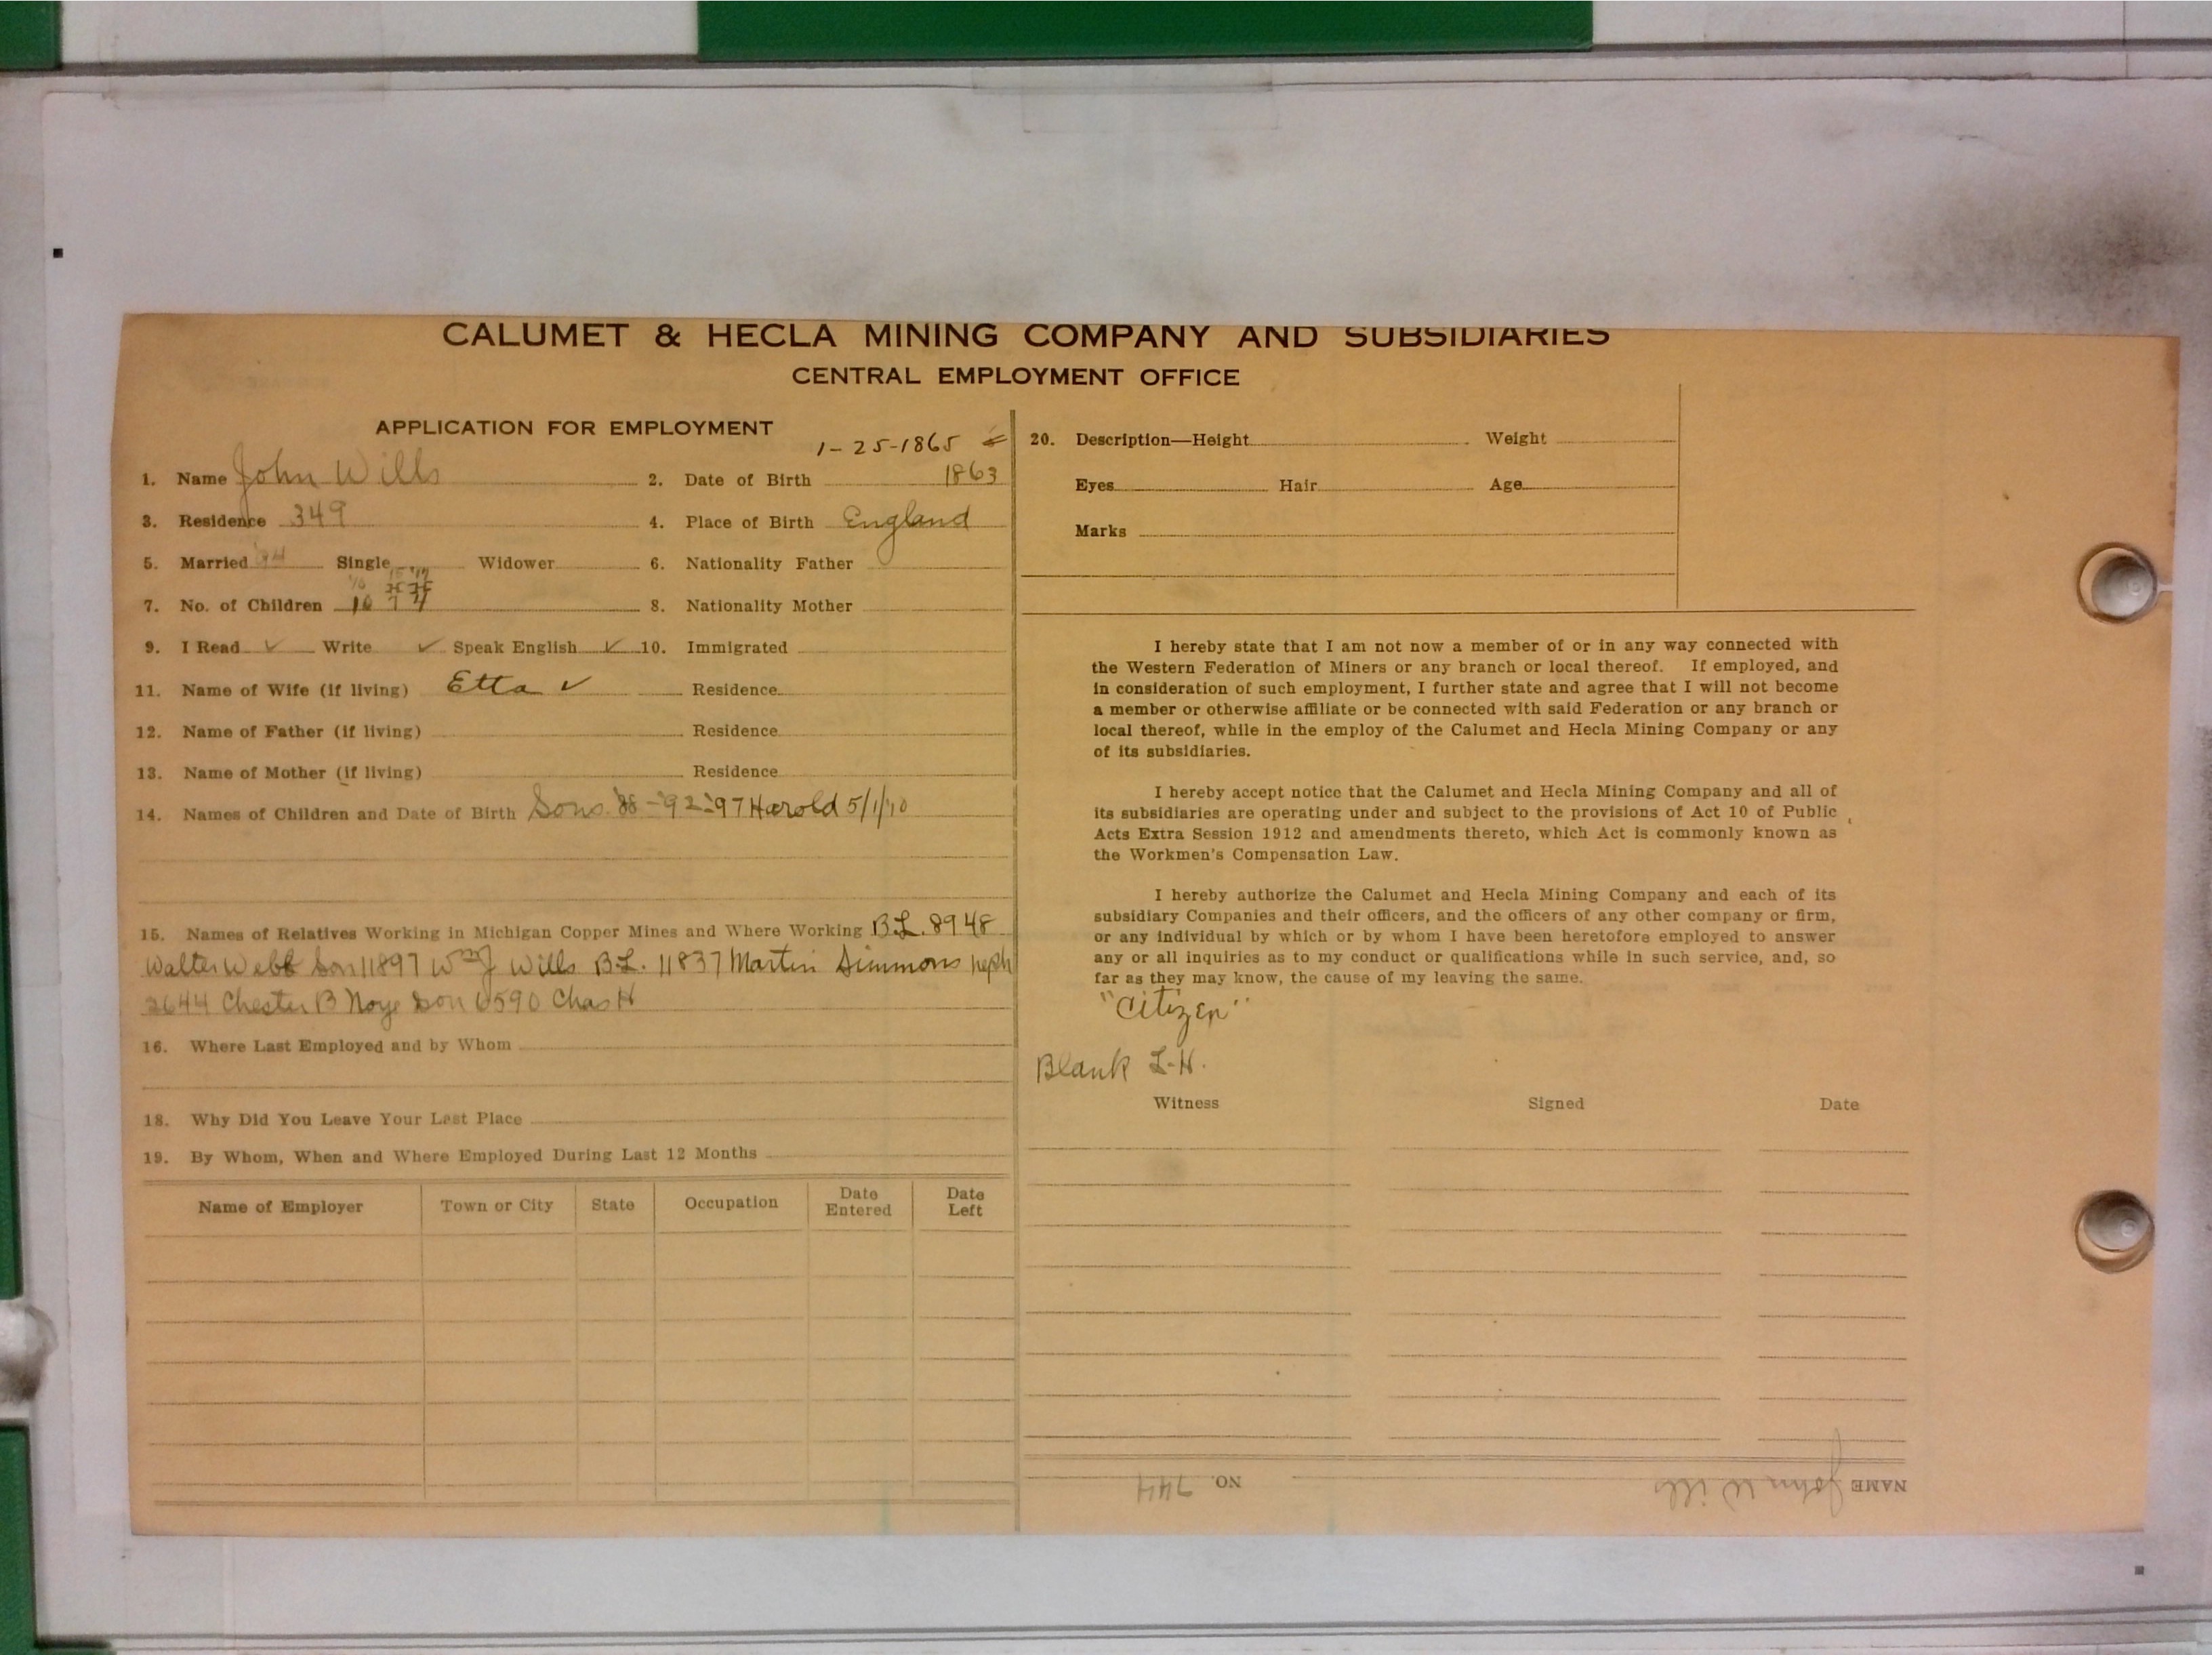 CALUMET & HECLA MINING COMPANY AND SUBSIDIARIES
CENTRAL EMPLOYMENT OFFICE
APPLICATION FOR EMPLOYMENT
1-25-1865
1. Name John Wills 2. Date of Birth 1863
3. Residence 349 4. Place of Birth England
5. Married Single Widower 6. Nationality Father
7. No. of Children 8. Nationality Mother
9. I Read ✓ Write ✓ Speak English ✓ 10. Immigrated
11. Name of Wife (if living) Etta ✓ Residence
12. Name of Father (if living) Residence
13. Name of Mother (if living) Residence
14. Names of Children and Date of Birth Sons '88-'92-'97 Harold 5/1/10
15. Names of Relatives Working in Michigan Copper Mines and Where Working B.L. 8948
Walter Webb Son 11897 Wm J Wills B.L. 11837 Martin Simmons neph
2644 Chester B Noye Son 6590 Chas H
16. Where Last Employed and by Whom
18. Why Did You Leave Your Last Place
19. By Whom, When and Where Employed During Last 12 Months
Name of Employer Town or City State Occupation Date Entered Date Left
20. Description—Height Weight
Eyes Hair Age
Marks
I hereby state that I am not now a member of or in any way connected with
the Western Federation of Miners or any branch or local thereof. If employed, and
in consideration of such employment, I further state and agree that I will not become
a member or otherwise affiliate or be connected with said Federation or any branch or
local thereof, while in the employ of the Calumet and Hecla Mining Company or any
of its subsidiaries.
I hereby accept notice that the Calumet and Hecla Mining Company and all of
its subsidiaries are operating under and subject to the provisions of Act 10 of Public
Acts Extra Session 1912 and amendments thereto, which Act is commonly known as
the Workmen's Compensation Law.
I hereby authorize the Calumet and Hecla Mining Company and each of its
subsidiary Companies and their officers, and the officers of any other company or firm,
or any individual by which or by whom I have been heretofore employed to answer
any or all inquiries as to my conduct or qualifications while in such service, and, so
far as they may know, the cause of my leaving the same.
"Citizen"
Blank L-H.
Witness Signed Date
NAME John Wills NO. 744